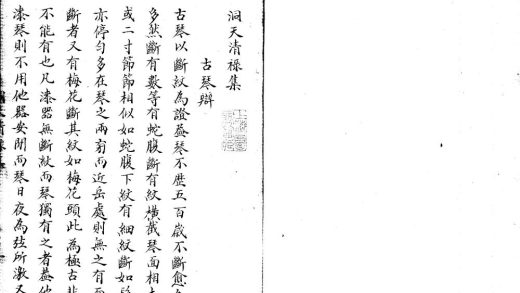 洞天清祿集
古琴辯
古琴以斷紋為證蓋琴不歴五百歳不斷愈
多然斷有數等有蛇腹斷有紋橫截琴面相
或二寸節節相似如蛇腹下紋有細紋斷如
亦停匀多在琴之兩旁而近岳處則無之有
斷者又有梅花斷其紋如梅花頭此為極古非
不能有也凡漆器無斷紋而琴獨有之者蓋他
漆琴則不用他器安閒而琴日夜為弦所激又